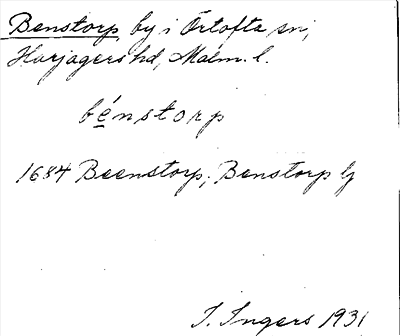 Benstorp by i Örtofta sn,
Harjagers hd, Malm. l.
bénstorp
1684 Beenstorp, Benstorp Lj
I. Ingers 1931